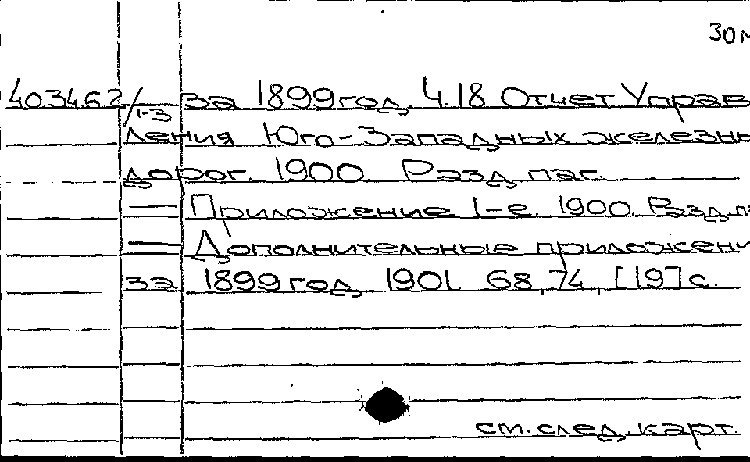 30м
403462/1-3 — за 1899 год. Ч.18 Отчет Управ
ления Юго-Западных железн
дорог. 1900. Разд. паг.
— Приложение 1-е. 1900. Разд.п
— Дополнительные приложени
за 1899 год. 1901. 68, 74, [19] с.
см. след. карт.